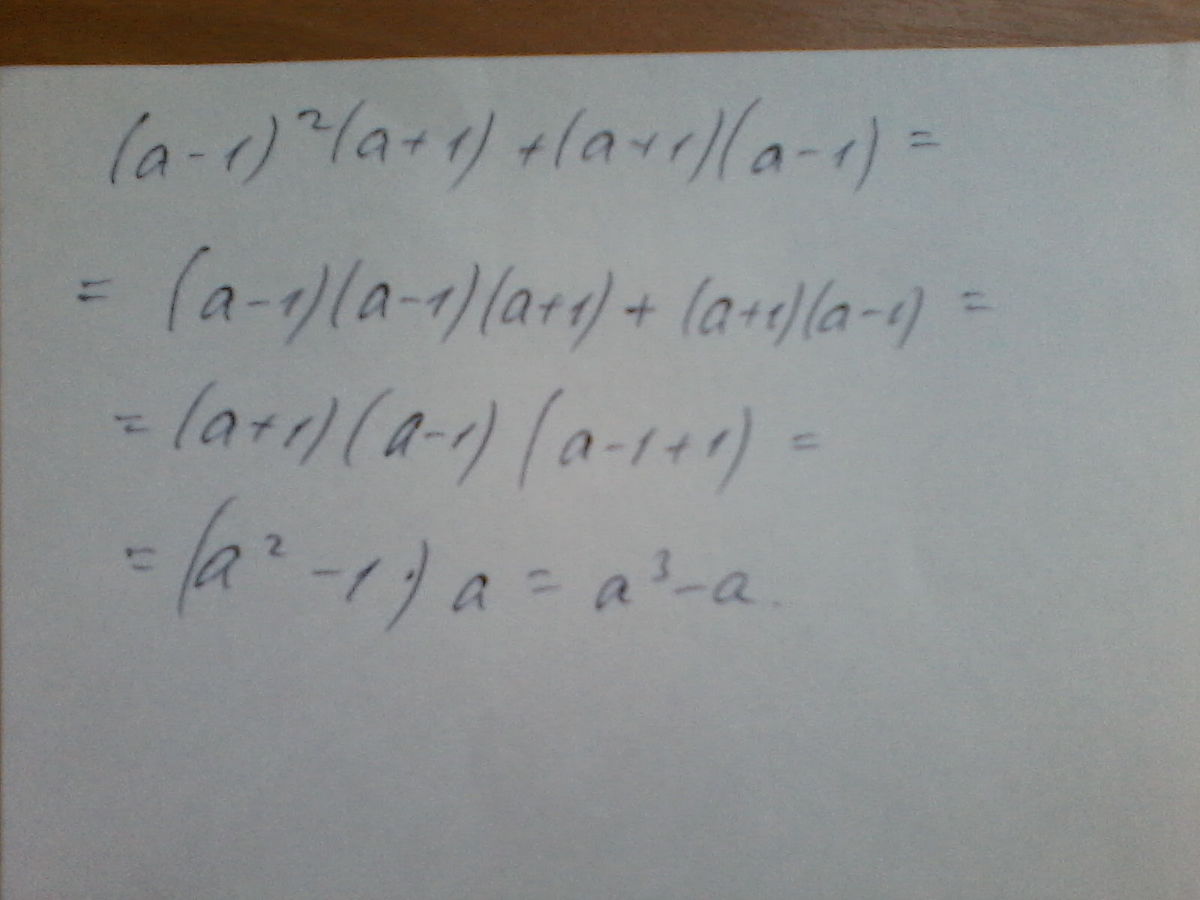 (a-1)²(a+1)+(a+1)(a-1)=
= (a-1)(a-1)(a+1)+(a+1)(a-1)=
=(a+1)(a-1)(a-1+1)=
=(a²-1)a=a³-a.